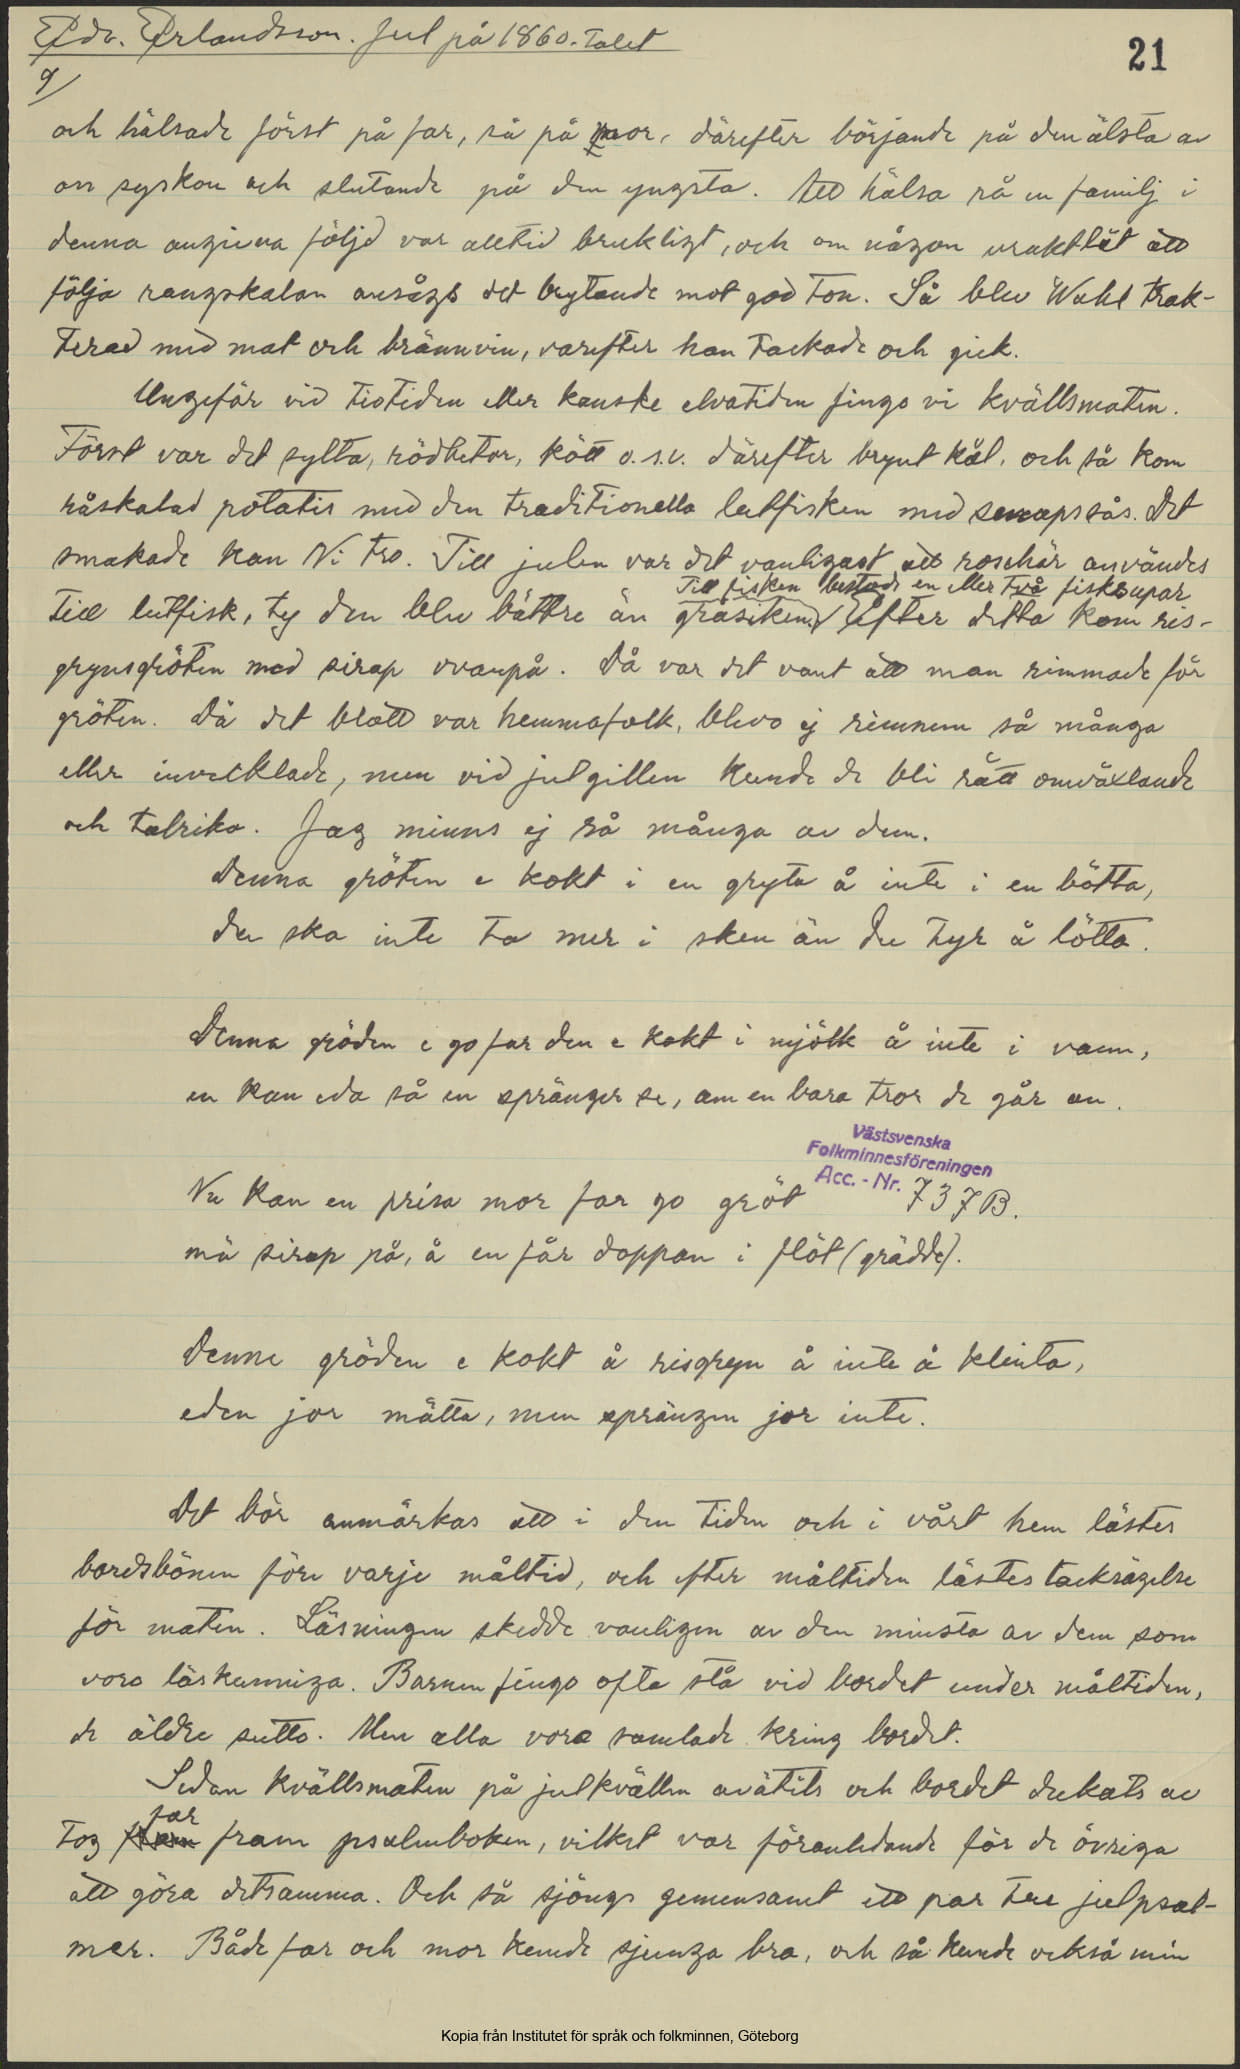 Edv. Erlandsson. Jul på 1860-talet
21
9/
och hälsade först på far, så på mor, därefter börjande på den älsta av
oss syskon och slutande på den yngsta. Att hälsa så en familj i
denna angivna följd var alltid brukligt, och om någon uraktlät att
följa rangskalan ansågs det brytande mot god ton. Så blev Wahl trak-
terad med mat och brännvin, varefter han tackade och gick.
Ungefär vid tiotiden eller kanske elvatiden fingo vi kvällsmaten.
Först var det sylta, rödbetor, kött o.s.v. därefter brynt kål, och så kom
råskalad potatis med den traditionella lutfisken med senapssås. Det
smakade kan Ni tro. Till julen var det vanligast att roschär användes
Till fisken bestods en eller två fisksupar
till lutfisk, ty den blev bättre än gråsiken. Efter detta kom ris-
grynsgröten med sirap ovanpå. Då var det vant att man rimmade för
gröten. Då det blott var hemmafolk, blevo ej rimmen så många
eller invecklade, men vid julgillen kunde de bli rätt omväxlande
och talrika. Jag minns ej så många av dem.
Denna gröten e kokt i en gryta å inte i en bötta,
du ska inte ta mer i sken än du tyr å lötta.
Denna gröden e go far den e kokt i mjölk å inte i vann,
en kan eda så en spränger se, am en bara tror de går an.
Västsvenska
Folkminnesföreningen
Acc. - Nr. 737B.
Nu kan en prisa mor far go gröt
mä sirap på, å en får doppan i flöt (grädde).
Denne gröden e kokt å risgryn å inte å klinta,
eden jor mätta, men sprängen jor inte.
Det bör anmärkas att i den tiden och i vårt hem lästes
bordsbönen före varje måltid, och efter måltiden lästes tacksägelse
för maten. Läsningen skedde vanligen av den minsta av dem som
voro läskunniga. Barnen fingo ofta stå vid bordet under måltiden,
de äldre sutto. Men alla voro samlade kring bordet.
Sedan kvällsmaten på julkvällen avätits och bordet dukats av
tog far fram psalmboken, vilket var föranledande för de övriga
att göra detsamma. Och så sjöngs gemensamt ett par tre julpsal-
mer. Både far och mor kunde sjunga bra, och så kunde också min
Kopia från Institutet för språk och folkminnen, Göteborg